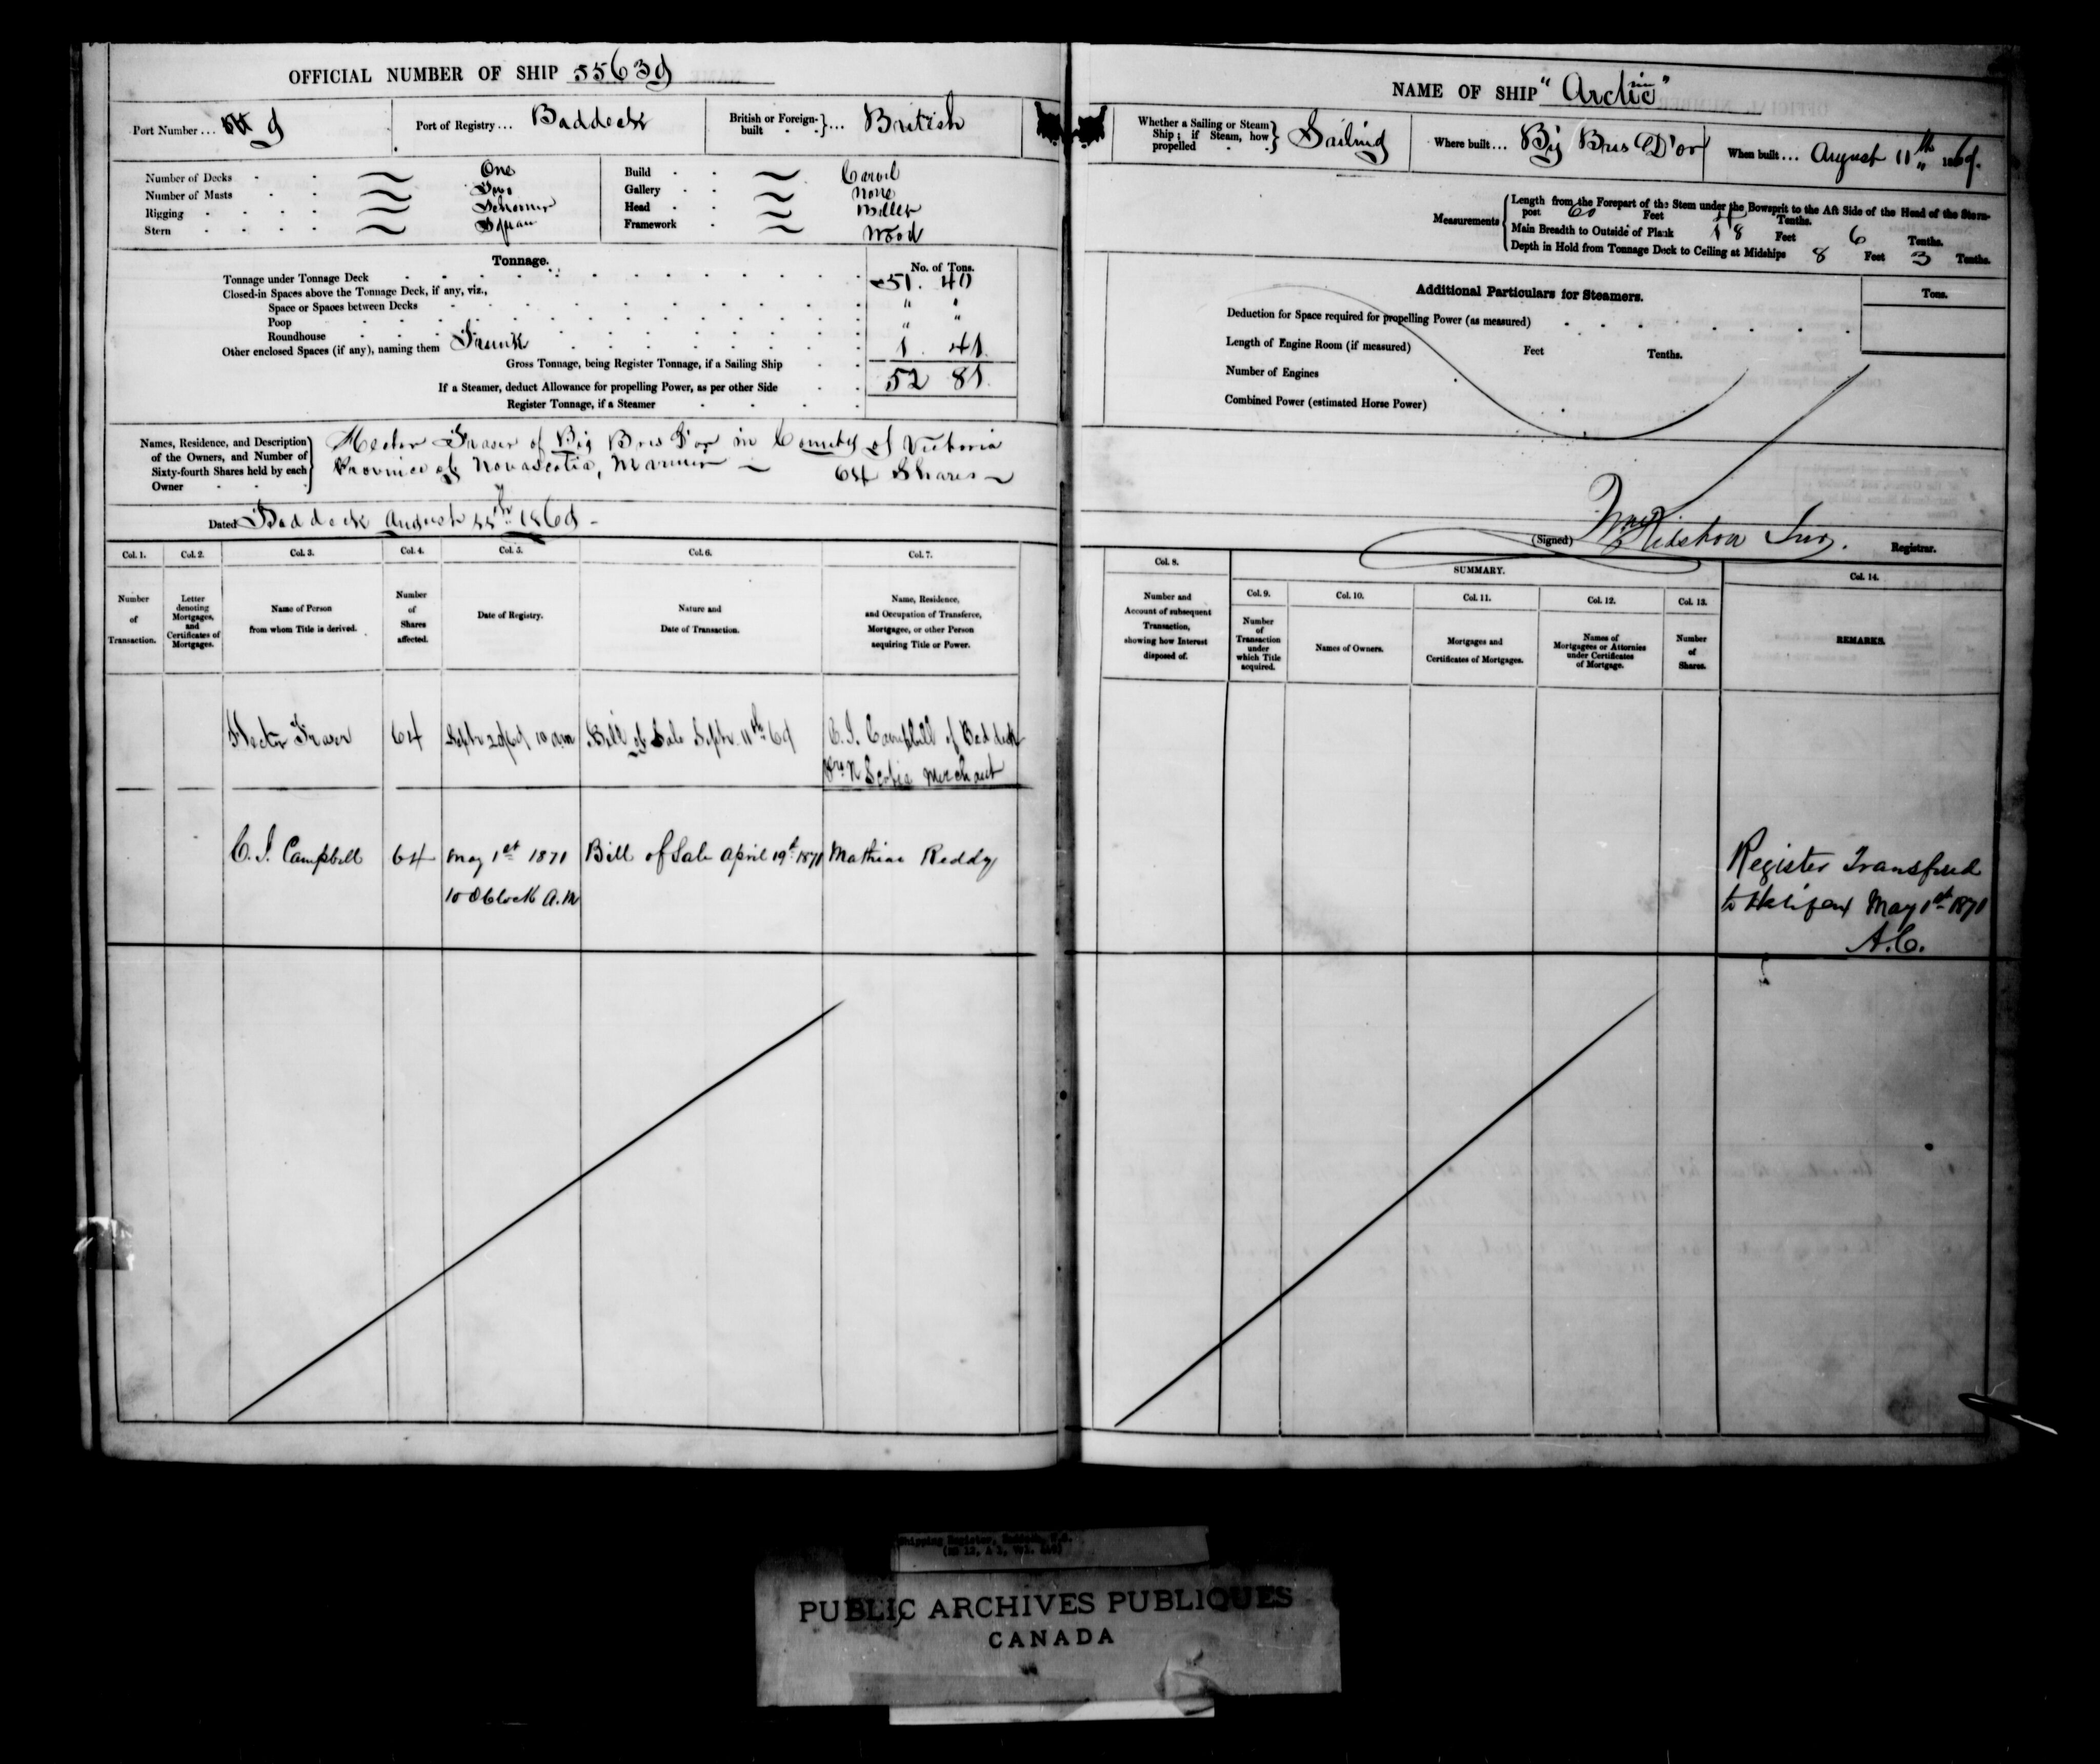 OFFICIAL NUMBER OF SHIP 55639
Port Number... 9
Port of Registry... Baddeck
British or Foreign-built }... British
Number of Decks One
Number of Masts Two
Rigging Schooner
Stern Square
Build Carvel
Gallery None
Head Billet
Framework Wood
Tonnage.
No. of Tons.
Tonnage under Tonnage Deck 51. 40
Closed-in Spaces above the Tonnage Deck, if any, viz.,
Space or Spaces between Decks " "
Poop " "
Roundhouse
Other enclosed Spaces (if any), naming them Trunk 1. 41
Gross Tonnage, being Register Tonnage, if a Sailing Ship 52 81
If a Steamer, deduct Allowance for propelling Power, as per other Side
Register Tonnage, if a Steamer
Names, Residence, and Description of the Owners, and Number of Sixty-fourth Shares held by each Owner
Hector Fraser of Big Bras D'or in County of Victoria
Province of Nova Scotia, Mariner 64 Shares
Dated Baddeck August 1869
Col. 1. Col. 2. Col. 3. Col. 4. Col. 5. Col. 6. Col. 7.
Number of Transaction.
Letter denoting Mortgages, and Certificates of Mortgages.
Name of Person from whom Title is derived.
Number of Shares affected.
Date of Registry.
Nature and Date of Transaction.
Name, Residence, and Occupation of Transferee, Mortgagee, or other Person acquiring Title or Power.
Hector Fraser 64 Septr 10 am Bill of Sale Septr. 11th 69 C. J. Campbell of Baddeck
N Scotia Merchant
C. J. Campbell 64 May 1st 1871 Bill of Sale April 19th 1871 Mathias Reddy
10 OClock A.M
NAME OF SHIP "Arctic"
Whether a Sailing or Steam Ship; if Steam, how propelled } Sailing
Where built... Big Bras D'or
When built... August 11th 1869.
Measurements
Length from the Forepart of the Stem under the Bowsprit to the Aft Side of the Head of the Stern-
post 60 Feet Tenths.
Main Breadth to Outside of Plank 18 Feet 6 Tenths.
Depth in Hold from Tonnage Deck to Ceiling at Midships 8 Feet 3 Tenths.
Additional Particulars for Steamers.
Tons.
Deduction for Space required for propelling Power (as measured)
Length of Engine Room (if measured) Feet Tenths.
Number of Engines
Combined Power (estimated Horse Power)
(Signed) Registrar.
Col. 8. SUMMARY. Col. 14.
Col. 9. Col. 10. Col. 11. Col. 12. Col. 13.
Number and Account of subsequent Transaction, showing how Interest disposed of.
Number of Transaction under which Title acquired.
Names of Owners.
Mortgages and Certificates of Mortgages.
Names of Mortgagees or Attornies under Certificates of Mortgage.
Number of Shares.
REMARKS.
Register Transfred
to Halifax May 1st 1871
A.C.
PUBLIC ARCHIVES PUBLIQUES
CANADA